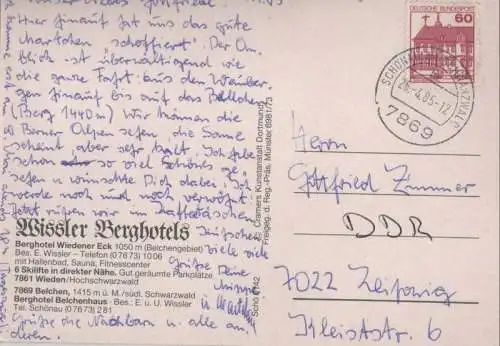 Hier hinauf hat uns das gute
"schoffiert". Der An-
blick ist überwältigend wie
die ganze Fahrt aus den Weinber-
gen hinauf bis auf das Belchen
(Berg 1440 m) Wir können die
Berner Alpen sehen, die Sonne
scheint, aber sehr kalt. Ich habe
schon so viel Schönes ge-
sehen u. wünschte Dich dabei. Ich
werde noch und noch verwöhnt.
Jetzt wir im
viele viele
Grüße Deine
u.
Grüße die Nachbarn u. alle an-
deren.
Wissler Berghotels
Berghotel Wiedener Eck 1050 m (Belchengebiet)
Bes. E. Wissler – Telefon (07673) 1006
mit Hallenbad, Sauna, Fitnesscenter
6 Skilifte in direkter Nähe. Gut geräumte Parkplätze
7861 Wieden/Hochschwarzwald
7869 Belchen, 1415 m ü. M./südl. Schwarzwald
Berghotel Belchenhaus - Bes.: E. u. U. Wissler
Tel. Schönau (07673) 281
Cramers Kunstanstalt Dortmund
Freigeg. d. Reg.-Präs. Münster 6981/73
DEUTSCHE BUNDESPOST
60
7869
Herrn
Gottfried Zimmer
DDR
7022 Leipzig
Kleiststr. 6